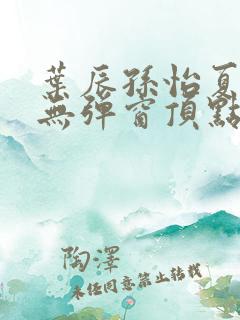 葉辰孫怡夏
無彈窗頂點
陶澤
未經同意禁止轉載